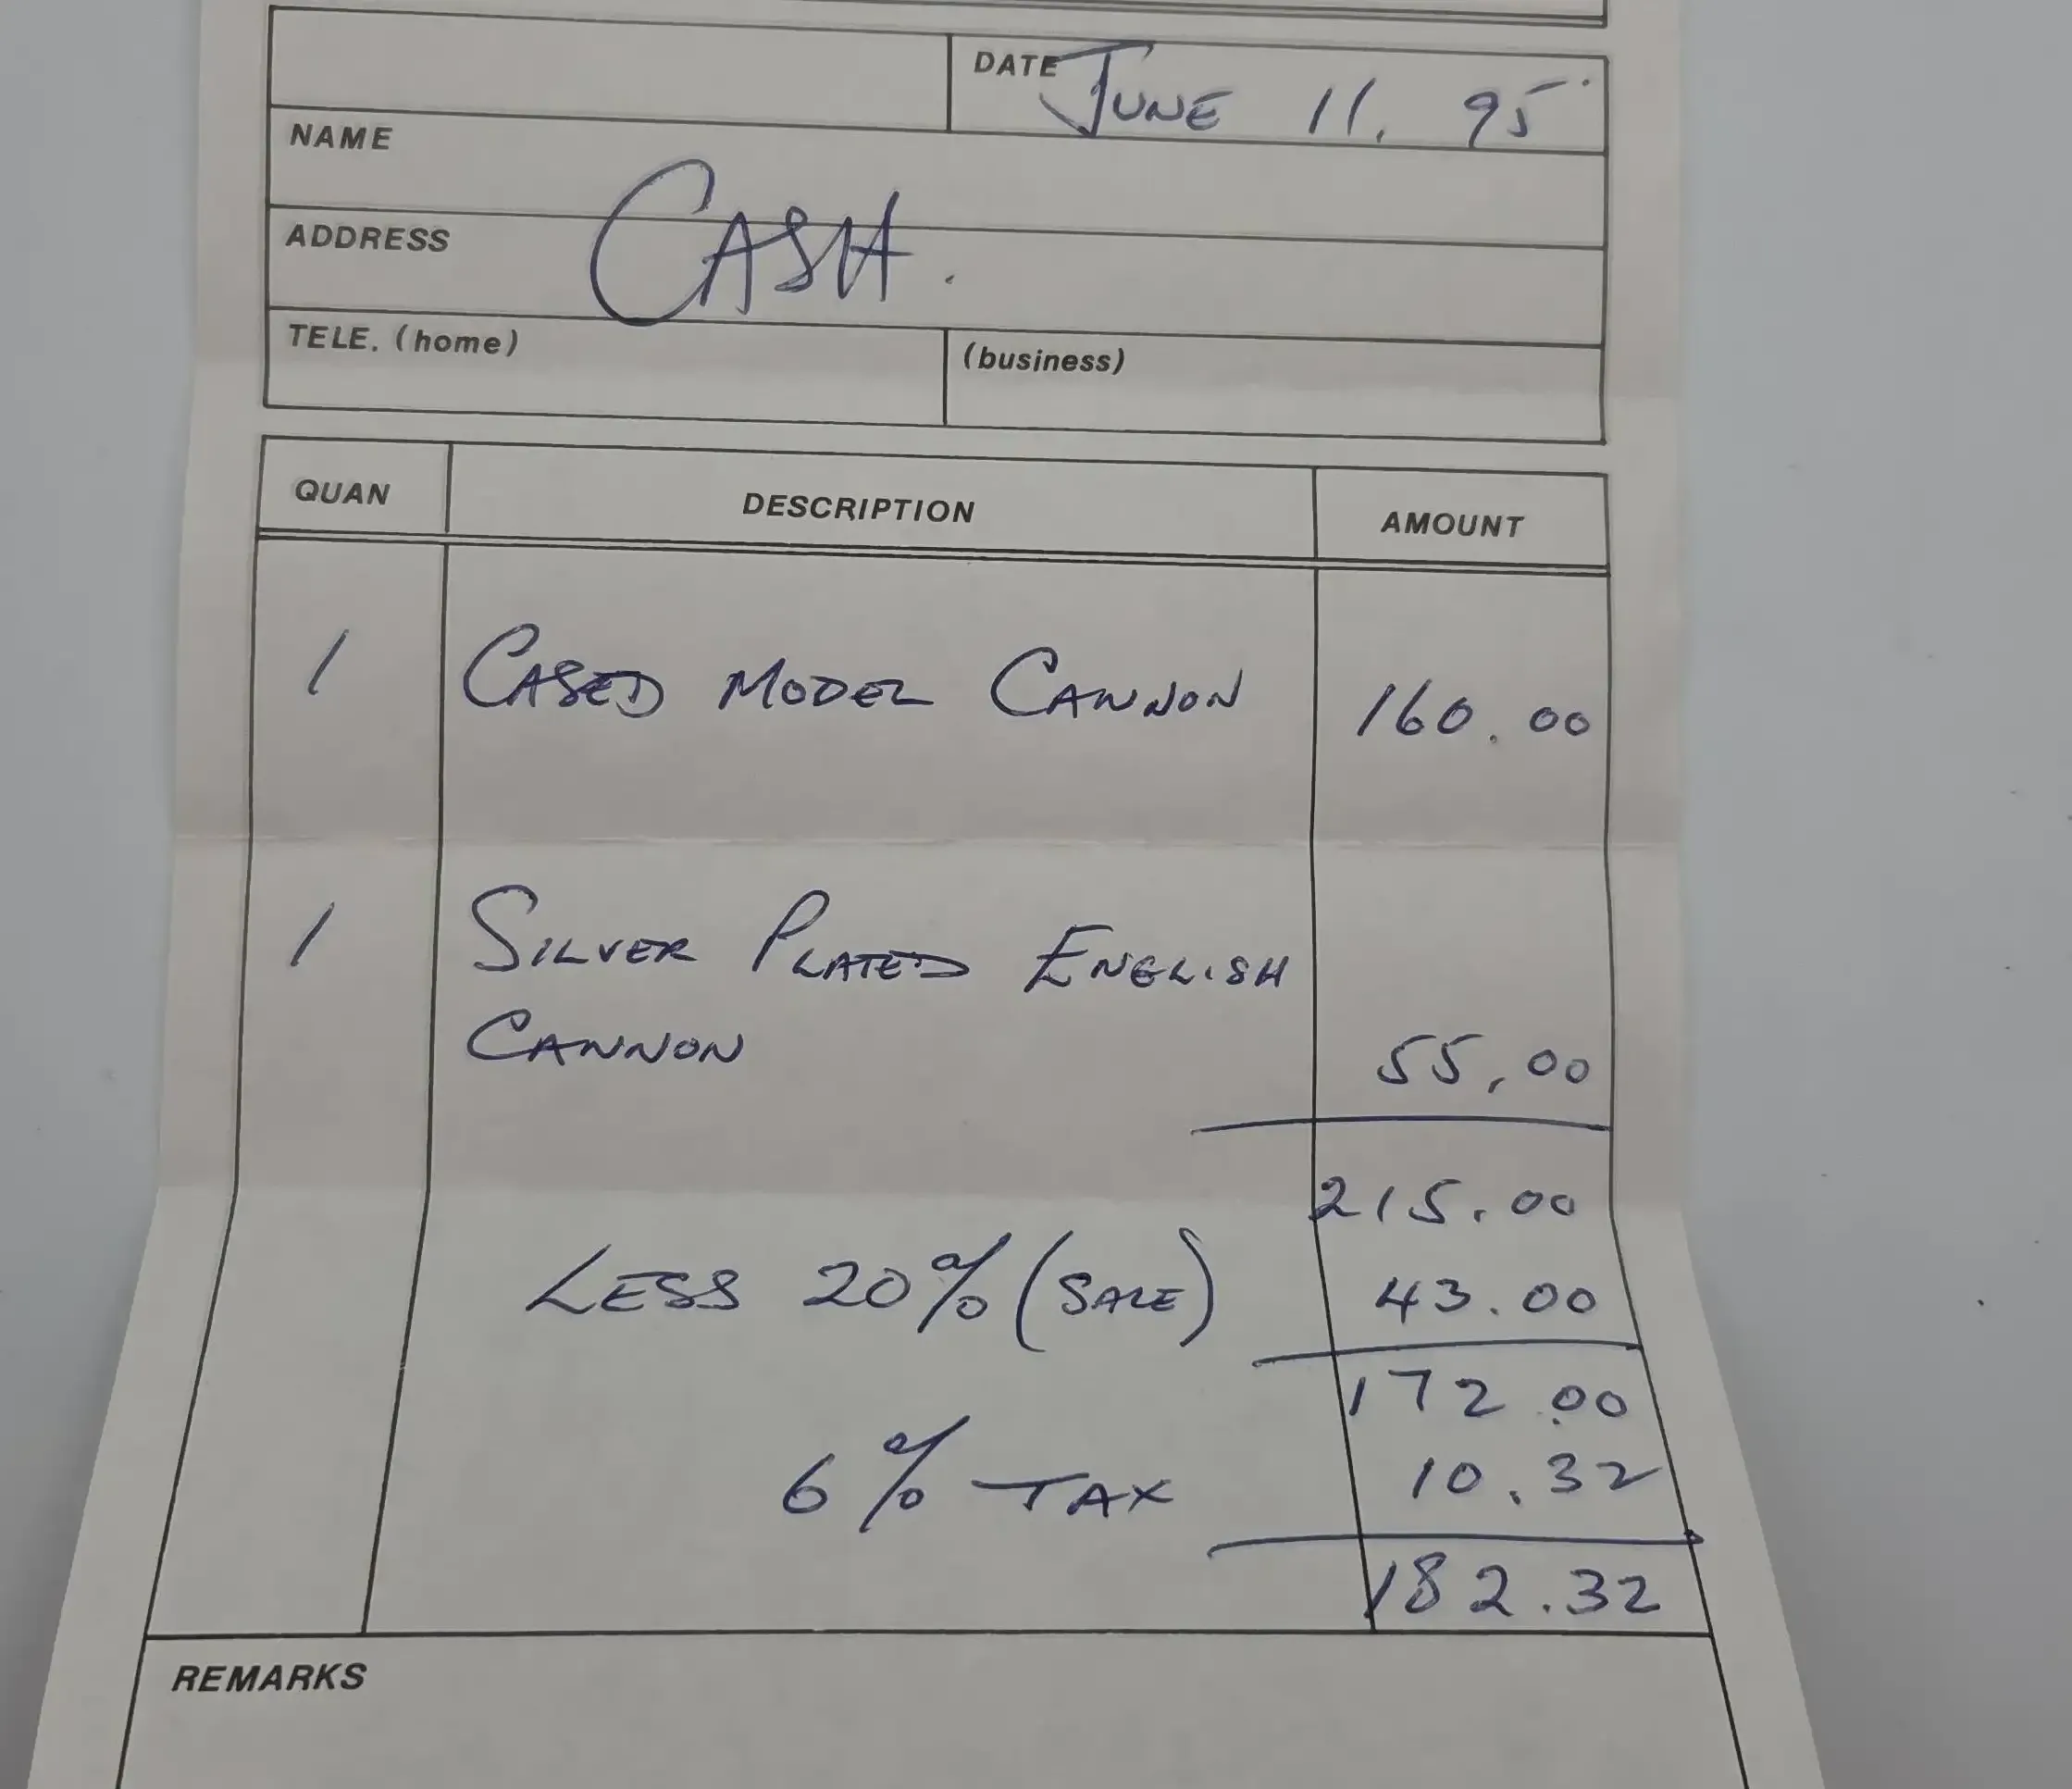 DATE JUNE 11, 95
NAME
CASH.
ADDRESS
TELE. (home) (business)
QUAN DESCRIPTION AMOUNT
1 CASED MODEL CANNON 160.00
1 SILVER PLATED ENGLISH
CANNON 55.00
215.00
LESS 20% (SALE) 43.00
172.00
6% TAX 10.32
182.32
REMARKS